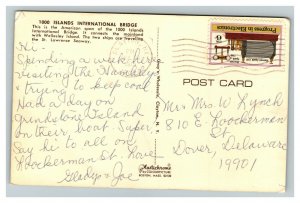 1000 ISLANDS INTERNATIONAL BRIDGE
This is the American span of the 1000
Islands International Bridge. It connects the mainland
with Wellesley Island. The two ships are travelling
the St. Lawrence Seaway.
Hi -
Spending a week here
visiting the
& trying to keep cool
Had a day on
Grindstone Island
on their boat. Super.
Say hi to all on
Koockerman St. Love
Gladys & Joe
Progress in Electronics
POST CARD
Mr & Mrs. W. Lynch
810 E Loockerman
St
Dover, Delaware
19901